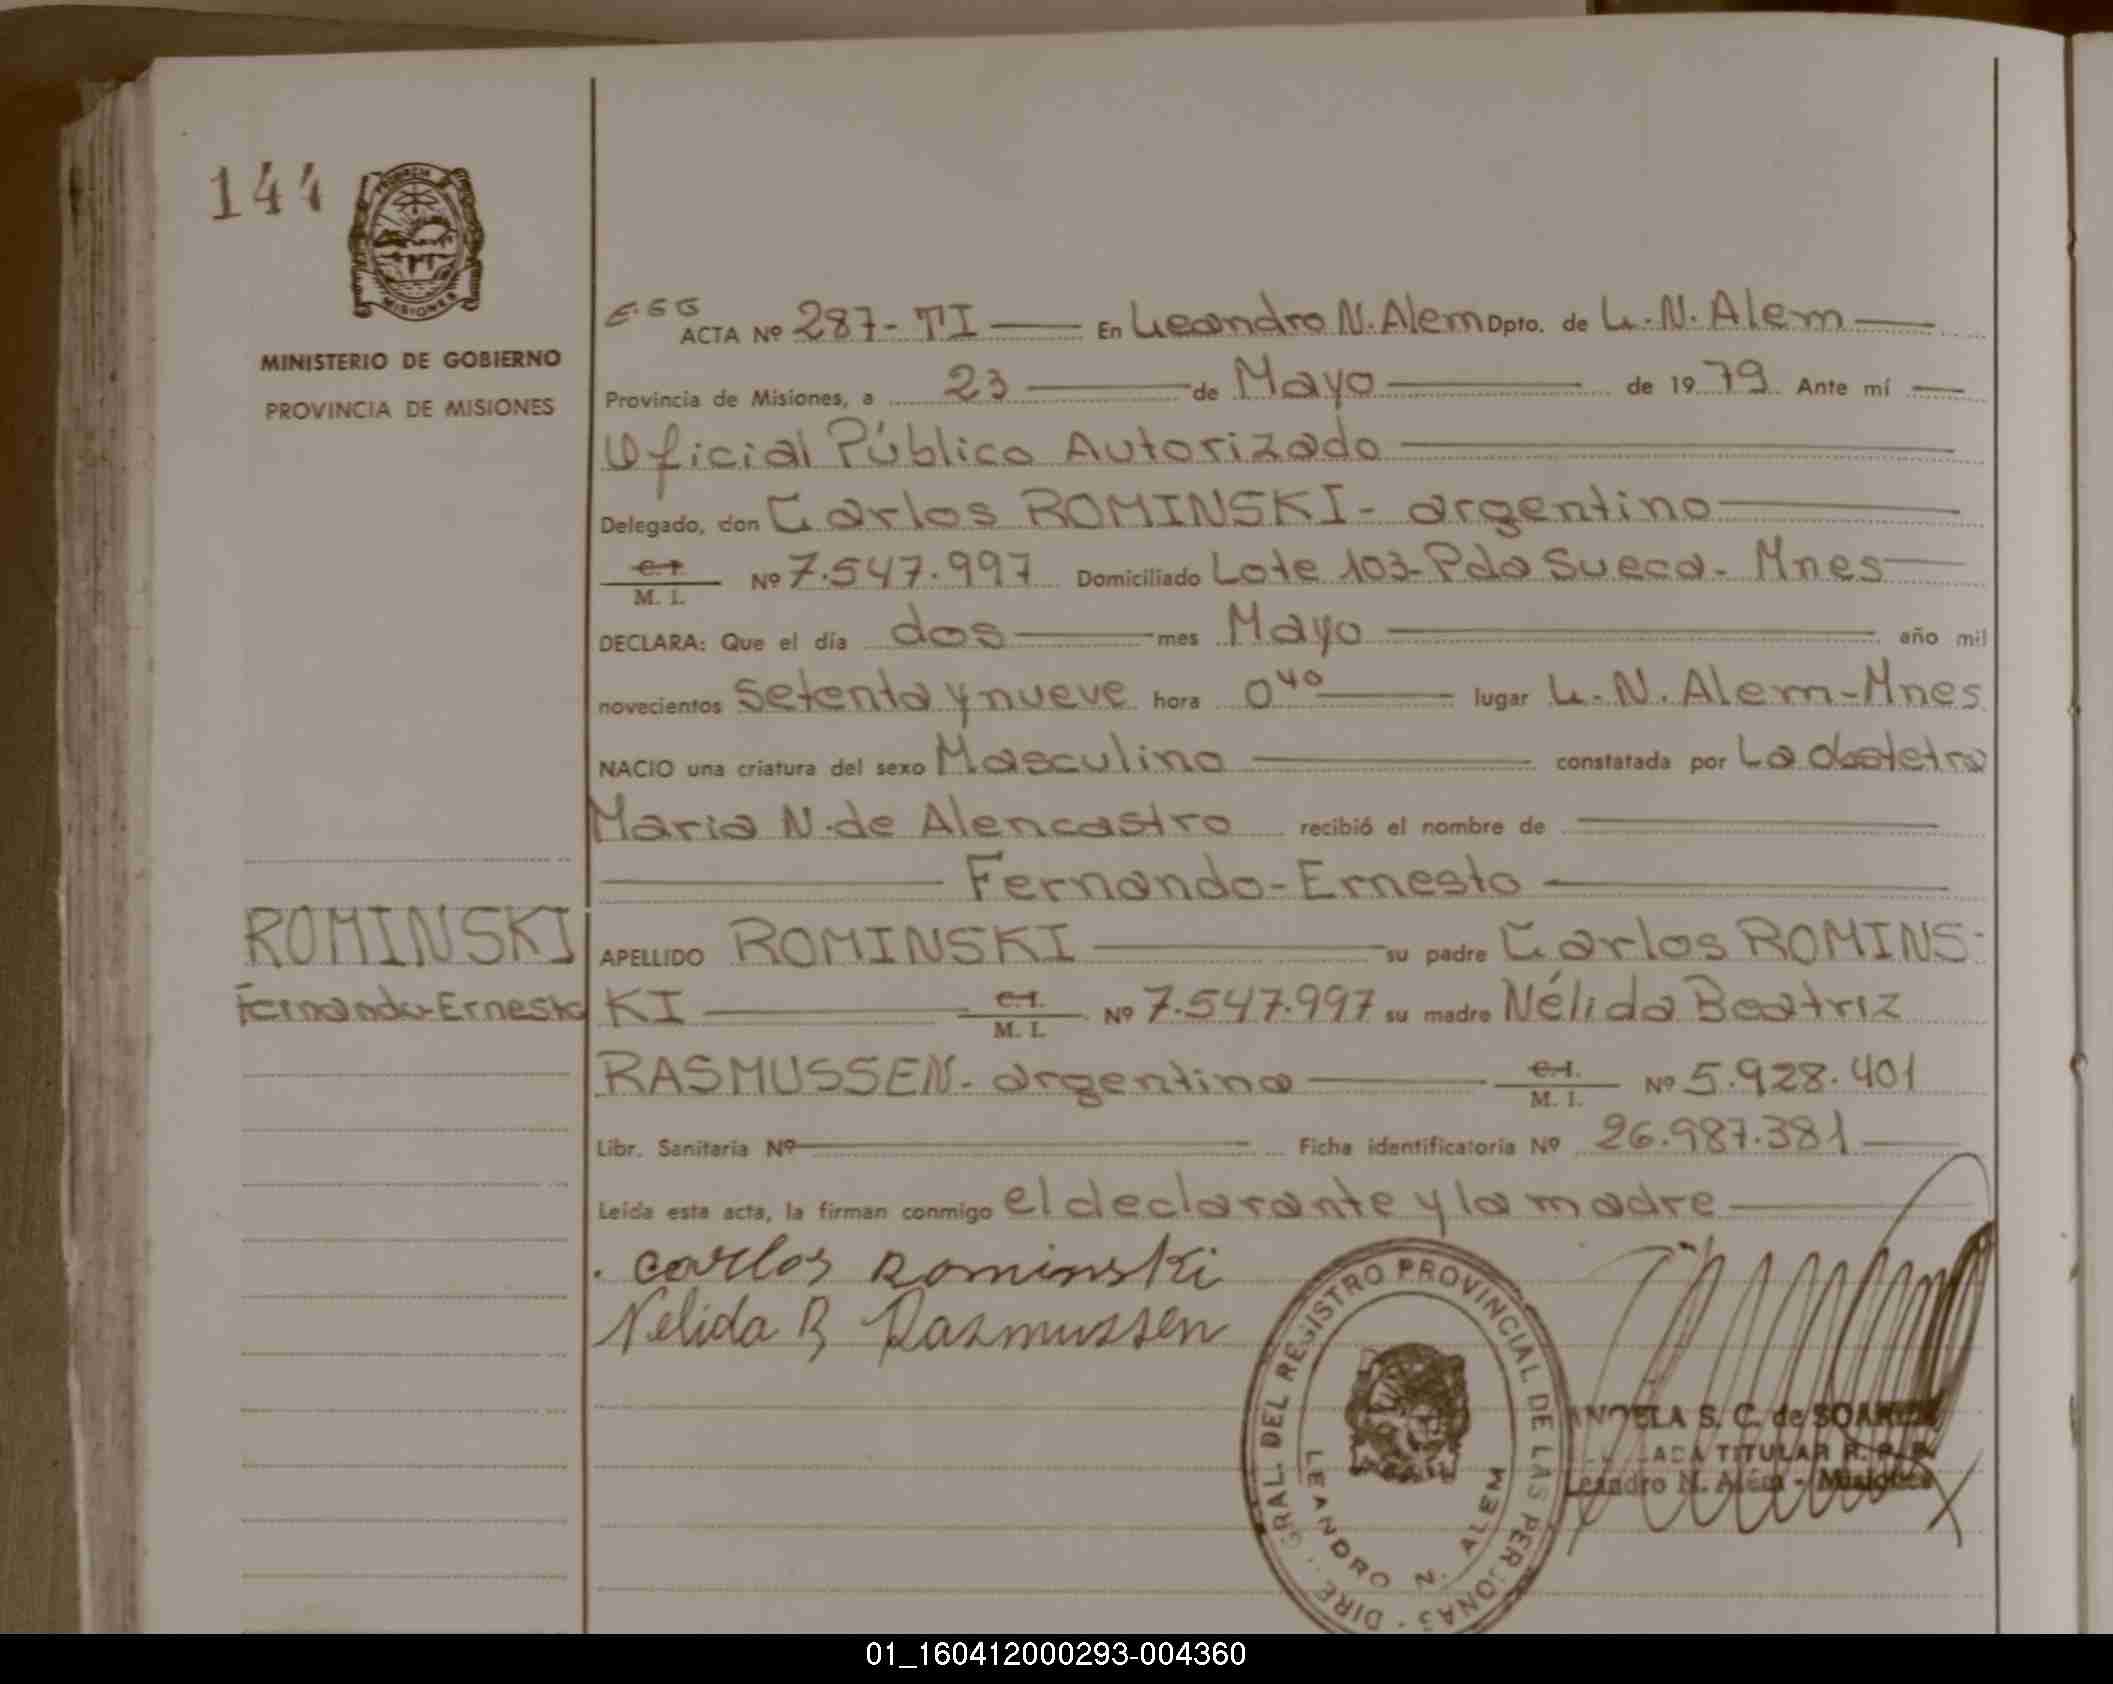 144
PROVINCIA
MISIONES
MINISTERIO DE GOBIERNO
PROVINCIA DE MISIONES
ROMINSKI
Fernando-Ernesto
ACTA Nº 287-TI En Leandro N. Alem Dpto. de L. N. Alem
Provincia de Misiones, a 23 de Mayo de 1979 Ante mí
Oficial Público Autorizado
Delegado, don Carlos ROMINSKI- argentino
M. I. Nº 7.547.997 Domiciliado Lote 103-Pda Sueca- Mnes
DECLARA: Que el día dos mes Mayo año mil
novecientos setenta y nueve hora 0⁴⁰ lugar L. N. Alem-Mnes
NACIO una criatura del sexo Masculino constatada por La obstetra
Maria N. de Alencastro recibió el nombre de
Fernando-Ernesto
APELLIDO ROMINSKI su padre Carlos ROMINS-
KI C.I. M. I. Nº 7.547.997 su madre Nélida Beatriz
RASMUSSEN- argentina C.I. M. I. Nº 5.928.401
Libr. Sanitaria Nº Ficha identificatoria Nº 26.987.381
Leída esta acta, la firman conmigo el declarante y la madre
Carlos Rominski
Nelida B Rasmussen
DIRE GRAL. DEL REGISTRO PROVINCIAL DE LAS PERSONAS
LEANDRO N. ALEM
ANGELA S. C. de SOAREZ
TITULAR R. P. P.
Leandro N. Além - Misiones
01_160412000293-004360